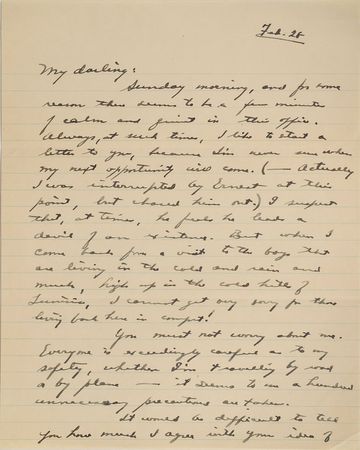 Feb. 28
My darling:
Sunday morning, and for some
reason there seems to be a few minutes
of calm and quiet in this office.
Always, at such times, I like to start a
letter to you, because I'm never sure when
my next opportunity will come. (— Actually
I was interrupted by Ernest at this
point, but chased him out.) I suspect
that, at times, he feels he leads a
devil of an existence. But when I
come back from a visit to the boys that
are living in the cold and rain and
muck, high up in the cold hills of
Tunisia, I cannot get very sorry for those
living back here in comfort!
You must not worry about me.
Everyone is exceedingly careful as to my
safety, whether I'm travelling by road
or by plane — it seems to me a hundred
unnecessary precautions are taken.
It would be difficult to tell
you how much I agree with your idea of